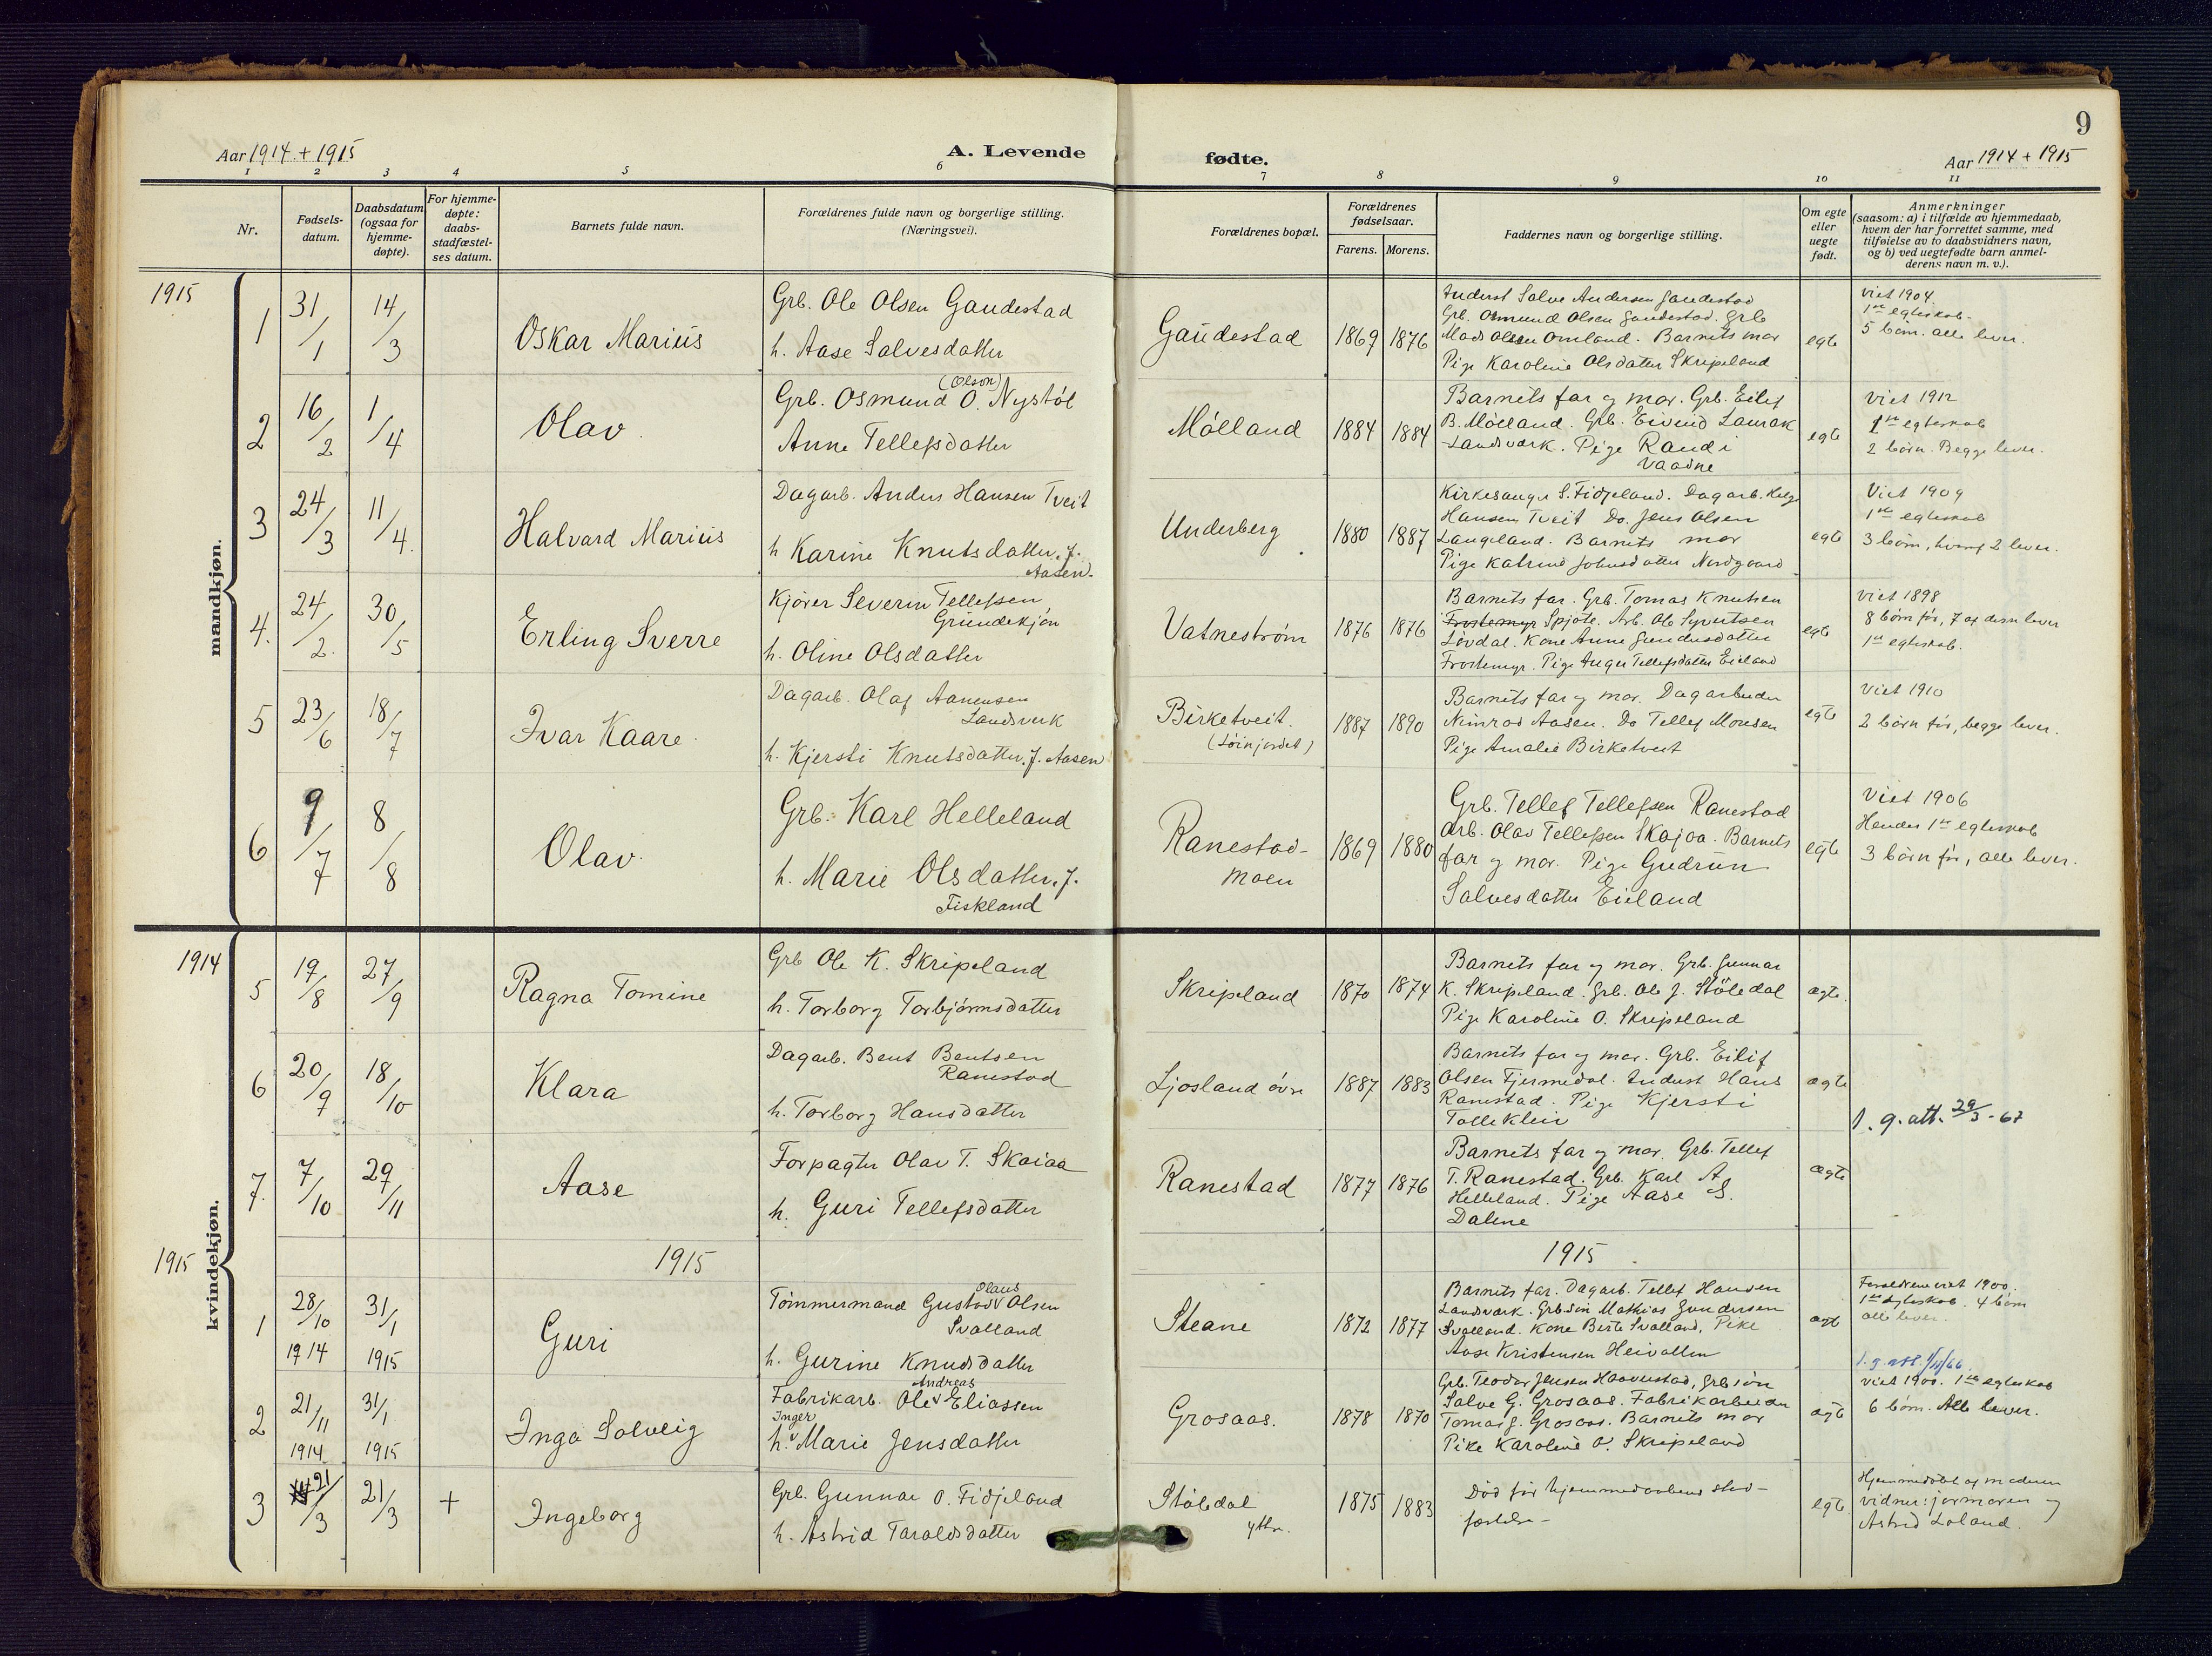 9
Aar 1914 + 1915
A. Levende
fødte.
Aar 1914 + 1915
1 2 3 4 5 6 7 8 9 10 11
Nr.
Fødsels-
datum.
Daabsdatum
(ogsaa for
hjemme-
døpte).
For hjemme-
døpte:
daabs-
stadfæstel-
ses datum.
Barnets fulde navn.
Forældrenes fulde navn og borgerlige stilling.
(Næringsvei).
Forældrenes bopæl.
Forældrenes
fødselsaar.
Farens. Morens.
Faddernes navn og borgerlige stilling.
Om egte
eller
uegte
født.
Anmerkninger
(saasom: a) i tilfælde av hjemmedaab,
hvem der har forrettet samme, med
tilføielse av to daabsvidners navn,
og b) ved uegtefødte barn anmel-
derens navn m. v.).
mandkjøn.
1915
1
31/1
14/3
Oskar Marius
Grb. Ole Olsen Gaudestad
h. Aase Salvesdatter
Gaudestad
1869
1876
Inderst Salve Andersen Gaudestad
Grb. Osmund Olsen Gaudestad. Grb
Mads Olsen Omland. Barnets mor
Pige Karoline Olsdatter Skripeland
egte
Viet 1904.
1ste egteskab.
5 børn. alle lever.
2
16/2
1/4
Olav
(Olson)
Grb. Osmund O. Nystøl
Anne Tellefsdatter
Mølland
1884
1884
Barnets far og mor. Grb. Eilef
B. Mølland. Grb. Eivind Laurak
Landsverk. Pige Randi
Vaadne
egte
Viet 1912
1ste egteskab
2 børn. Begge lever.
3
24/3
11/4.
Halvard Marius
Dagarb. Anders Hansen Tveit
h Karine Knutsdatter, f.
Aasen.
Underberg
1880
1887
Kirkesanger S. Fidjeland. Dagarb. Helge
Hansen Tveit Do. Jens Olsen
Langeland. Barnets mor
Pige Katrine Johnsdatter Nordgaard
egte
Viet 1909
1ste egteskab
3 børn, hvoraf 2 lever.
4.
24/2.
30/5
Erling Sverre
Kjører Severin Tellefsen
Grundekjøn
h. Oline Olsdatter
Vatnestrøm
1876
1876
Barnets far. Grb. Tomas Knutsen
Frostemyr Spjote. Arb. Ole Syvertsen
Løvdal. Kone Anne Gundersdatter
Frostemyr. Pige Inger Tellefsdatter Eieland
egte
Viet 1898
8 børn før, 7 af dem lever
1ste egteskab.
5
23/6
18/7
Ivar Kaare.
Dagarb. Olaf Aanensen
Landsverk
h. Kjersti Knutsdatter, f. Aasen
Birketveit.
1887
1890
Barnets far og mor. Dagarbeider
Nimrod Aasen. Do Tellef Monsen
Pige Amalie Birketveit
egte
Viet 1910
2 børn før, begge lever.
6
9/7
8/8
Olav
Grb. Karl Helleland
h. Marie Olsdatter, f.
Fiskland
Ranestad-
moen
1869
1880
Grb. Tellef Tellefsen Ranestad
Arb. Olav Tellefsen Skajaa. Barnets
far og mor. Pige Gudrun
Salvesdatter Eieland
egte
Viet 1906
Hendes 1ste egteskab
3 børn før, alle lever.
kvindekjøn.
1914
5
19/8
27/9
Ragna Tomine
Grb Ole K. Skripeland
h. Torborg Torbjørnsdatter
Skripeland
1870
1874
Barnets far og mor. Grb. Gunnar
K. Skripeland. Grb. Ole J. Støledal
Pige Karoline O. Skripeland
ægte.
6
20/9
18/10
Klara
Dagarb. Bent Bentsen
Ranestad
h. Torborg Hansdatter
Ljosland øvre
1887
1883
Barnets far og mor. Grb. Eilif
Olsen Fjermedal. Inderst Hans
Ranestad. Pige Kjersti
Tolleklein
ægte
1. g. att. 29/3 - 67
7.
7/10
29/11
Aase
Forpagter Olav T. Skaiaa
h. Guri Tellefsdatter
Ranestad
1877
1876
Barnets far og mor. Grb. Tellef
T. Ranestad. Grb. Karl A.
Helleland. Pige Aase S.
Dalene
ægte
1915
1915
1915
1
28/10
1914
31/1
1915
Guri
Olaus
Tømmermand Gustav Olsen
Svalland
h. Gurine Knudsdatter
Steane
1872
1877
Barnets far. Dagarb. Tellef Hansen
Landsverk. Grb.søn Mathias Gundersen
Svalland. Kone Berte Svalland, Pike
Aase Kristensen Heivollen
ægte
Forældrene viet 1900.
1ste Egteskab. 4 børn
alle lever.
2
21/11
1914
31/1
1915
Inga Solveig
Andreas
Fabrikarb. Ole Eliassen
Inger
h. Marie Jensdatter
Grosaas.
1878
1870
Grb. Teodor Jensen Haavrestad, Grb.søn
Salve G. Grosaas. Fabrikarbeider
Tomas J. Grosaas. Barnets mor
Pike Karoline O. Skripeland
ægte
viet 1900. 1ste egteskab
6 børn. Alle lever.
3
21/3
21/3
+
Ingeborg
Grb. Gunnar O. Fidjeland
h. Astrid Taraldsdatter
Støledal
ytre.
1875
1883
Død før hjemmedaabens stad-
fæstelse -
egte
Hjemmedøbt af moderen
vidner: jormoren og
Astrid Loland.